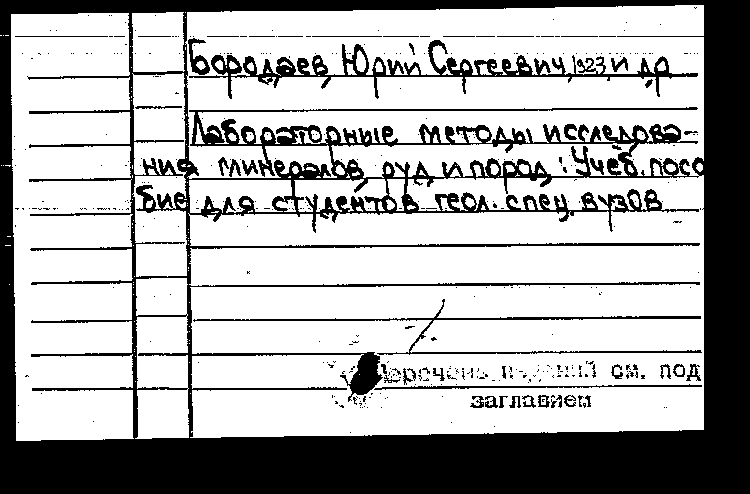 Бородаев Юрий Сергеевич, 1923, и др
Лабораторные методы исследова-
ния минералов, руд и пород: Учеб. посо
бие для студентов геол. спец. вузов
Перечень изданий см. под
заглавием